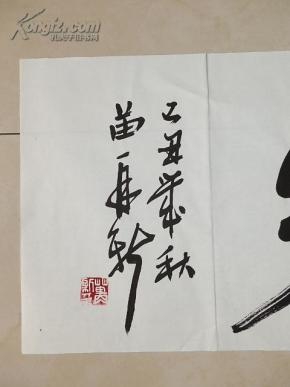 Kongfz.com
孔夫子旧书网
己丑岁秋
苗再新